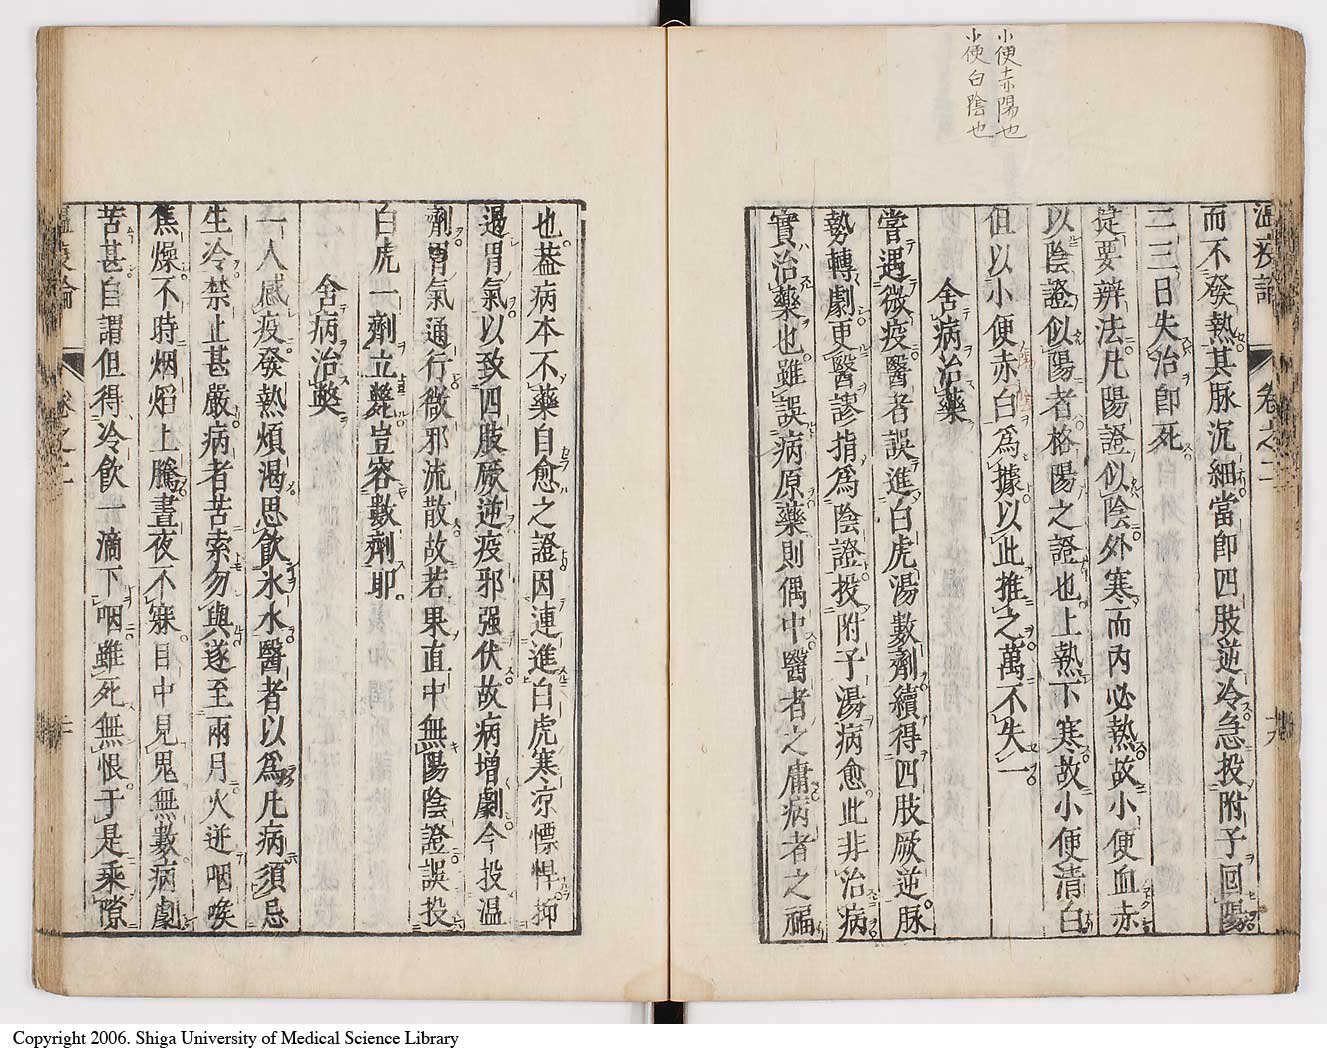 小便赤陽也
小便白陰也
溫疫論 卷之二
而不發熱其脉沉細當即四肢逆冷急投附子回陽
二三日失治即死
捷要辨法凢陽證似陰外寒而內必熱故小便血赤
以陰證似陽者格陽之證也上熱下寒故小便清白
但以小便赤白爲據以此推之萬不失一
舍病治藥
嘗遇微疫醫者誤進白虎湯數劑續得四肢厥逆脉
勢轉劇更醫謬指爲陰證投附子湯病愈此非治病
實治藥也雖誤病原藥則偶中醫者之庸病者之福
也葢病本不藥自愈之證因連進白虎寒凉慓悍抑
遏胃氣以致四肢厥逆疫邪强伏故病增劇今投温
劑胃氣通行微邪流散故若果直中無陽陰證誤投
白虎一劑立斃豈容數劑耶
舍病治弊
一人感疫發熱煩渴思飲氷水醫者以爲凢病須忌
生冷禁止甚嚴病者苦索勿與遂至兩月火迸咽喉
焦燥不時烟焰上騰晝夜不寐目中見鬼無數病劇
苦甚自謂但得冷飲一滴下咽雖死無恨于是乘隙
溫疫論 卷之二